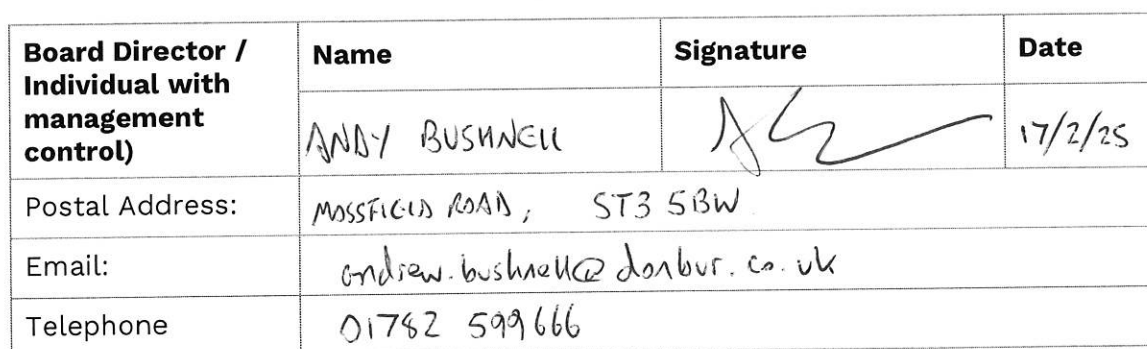 Board Director / Individual with management control)
Name
Signature
Date
ANDY BUSHNELL
17/2/25
Postal Address:
MOSSFIELD ROAD, ST3 5BW
Email:
andrew.bushnell@donbur.co.uk
Telephone
01782 599666